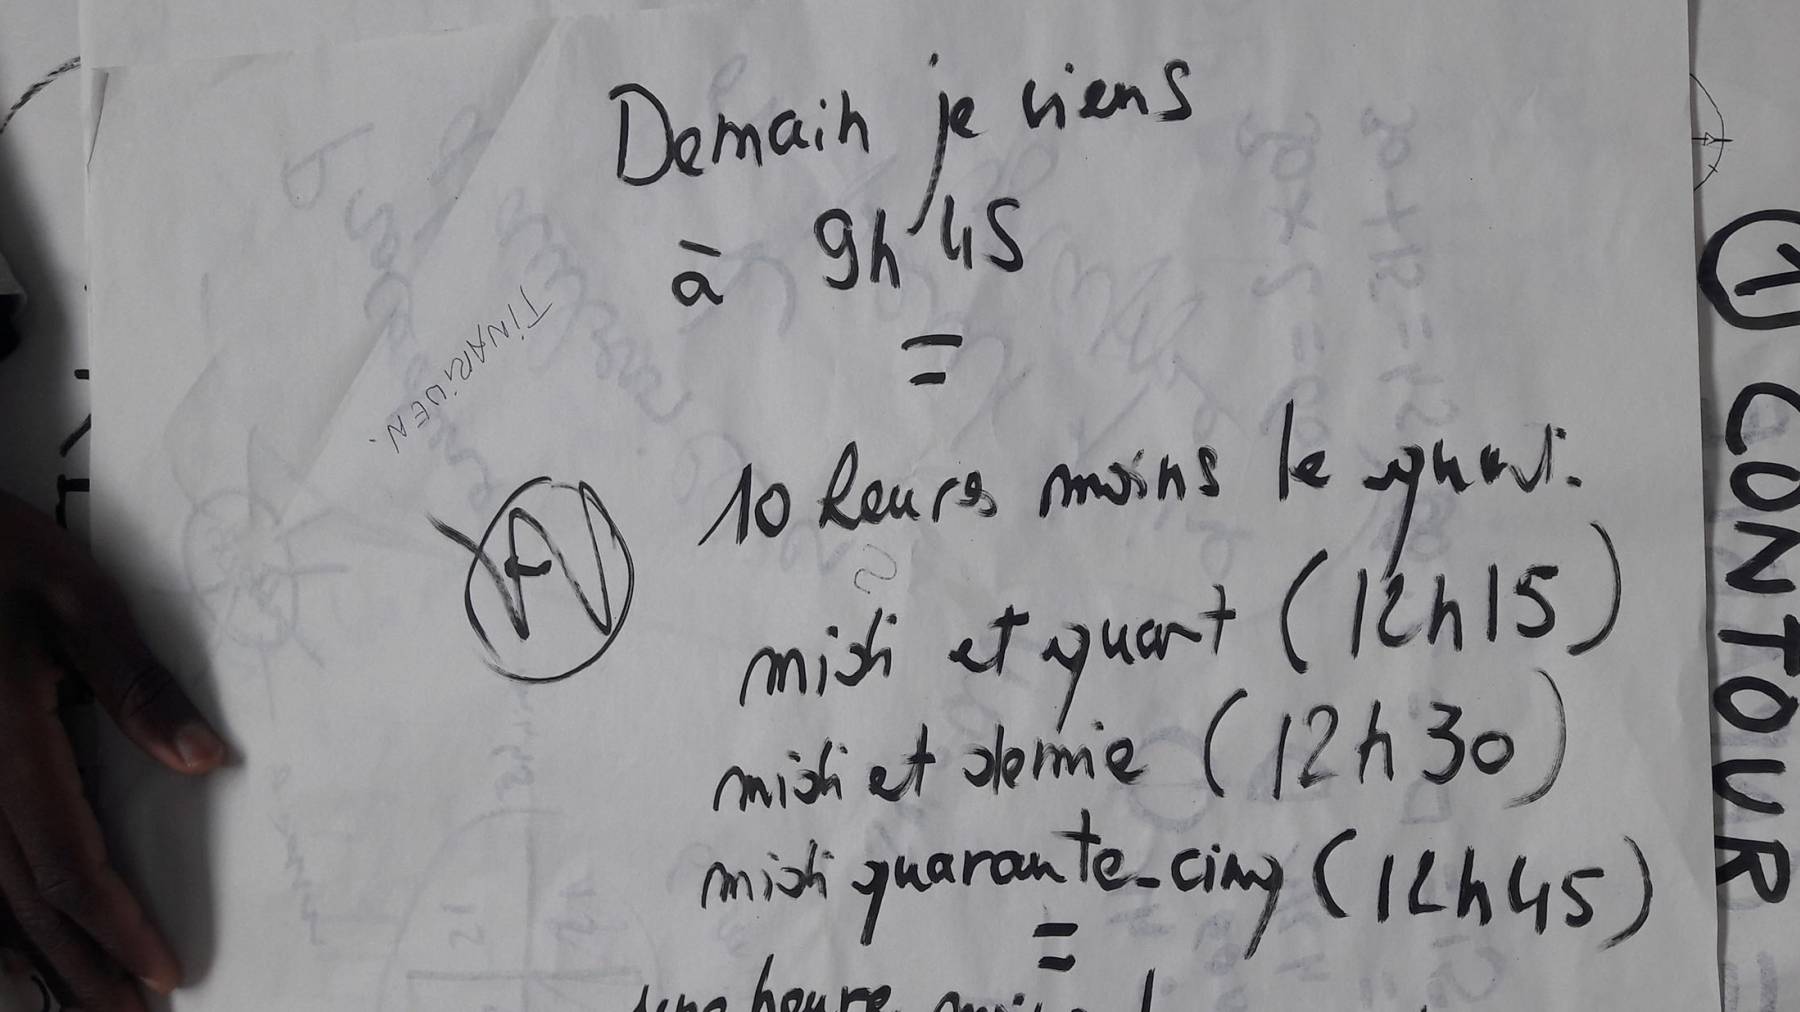 Demain je viens
à 9h45
=
TINARIWEN.
10 heures moins le quart.
midi et quart (12h15)
midi et demie (12h30)
midi quarante-cinq (12h45)
=
une heure moins l
① CONTOUR